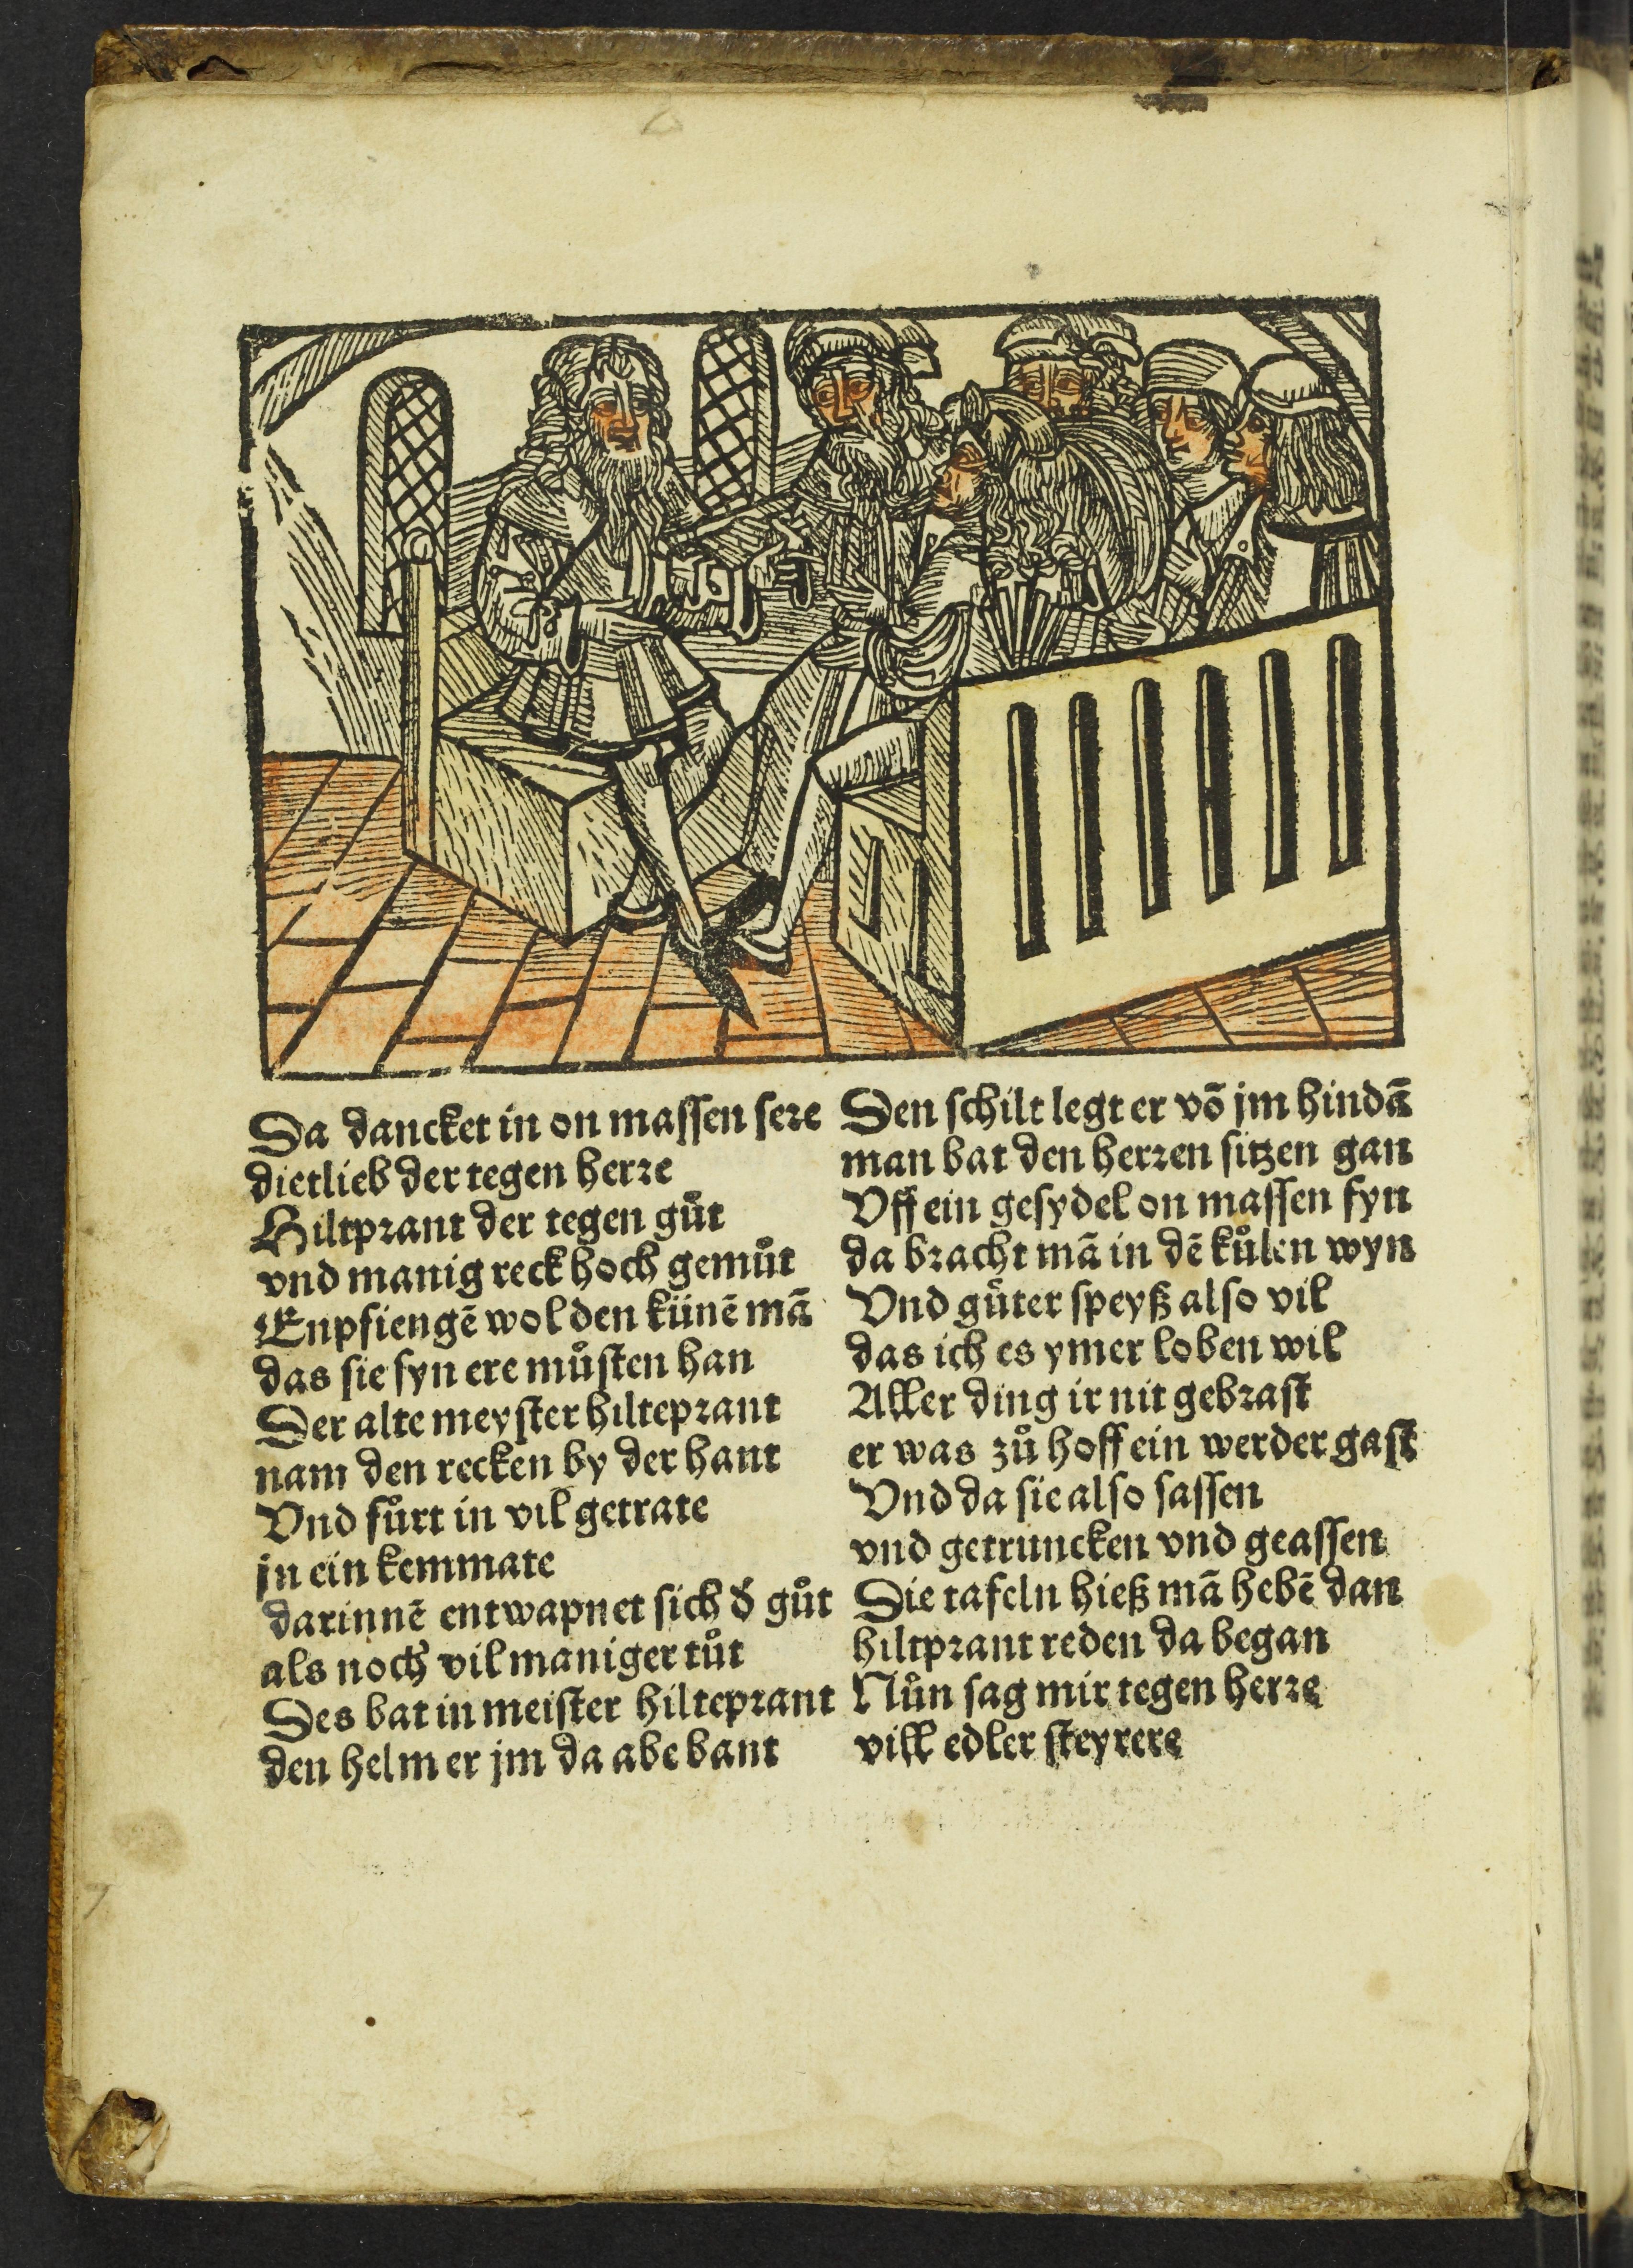 Da dancket in on massen sere
dietlieb der tegen herre
Hiltprant der tegen guͦt
vnd manig reck hoch gemuͦt
Enpfiengē wol den künē mā
das sie syn ere muͦsten han
Der alte meyster hilteprant
nam den recken by der hant
Vnd fuͦrt in vil getrate
jn ein kemmate
darinnē entwapnet sich d' guͦt
als noch vil maniger tuͦt
Des bat in meister hilteprant
den helm er jm da abe bant
Den schilt legt er vō jm hindā
man bat den herren sitzen gan
Vff ein gesydel on massen fyn
da bracht mā in dē kuͦlen wyn
Vnd guͤter speyß also vil
das ich es ymer loben wil
Aller ding ir nit gebrast
er was zuͦ hoff ein werder gast
Vnd da sie also sassen
vnd getruncken vnd geassen
Die tafeln hieß mā hebē dan
hiltprant reden da began
Nuͦn sag mir tegen herre
vill edler steyrere